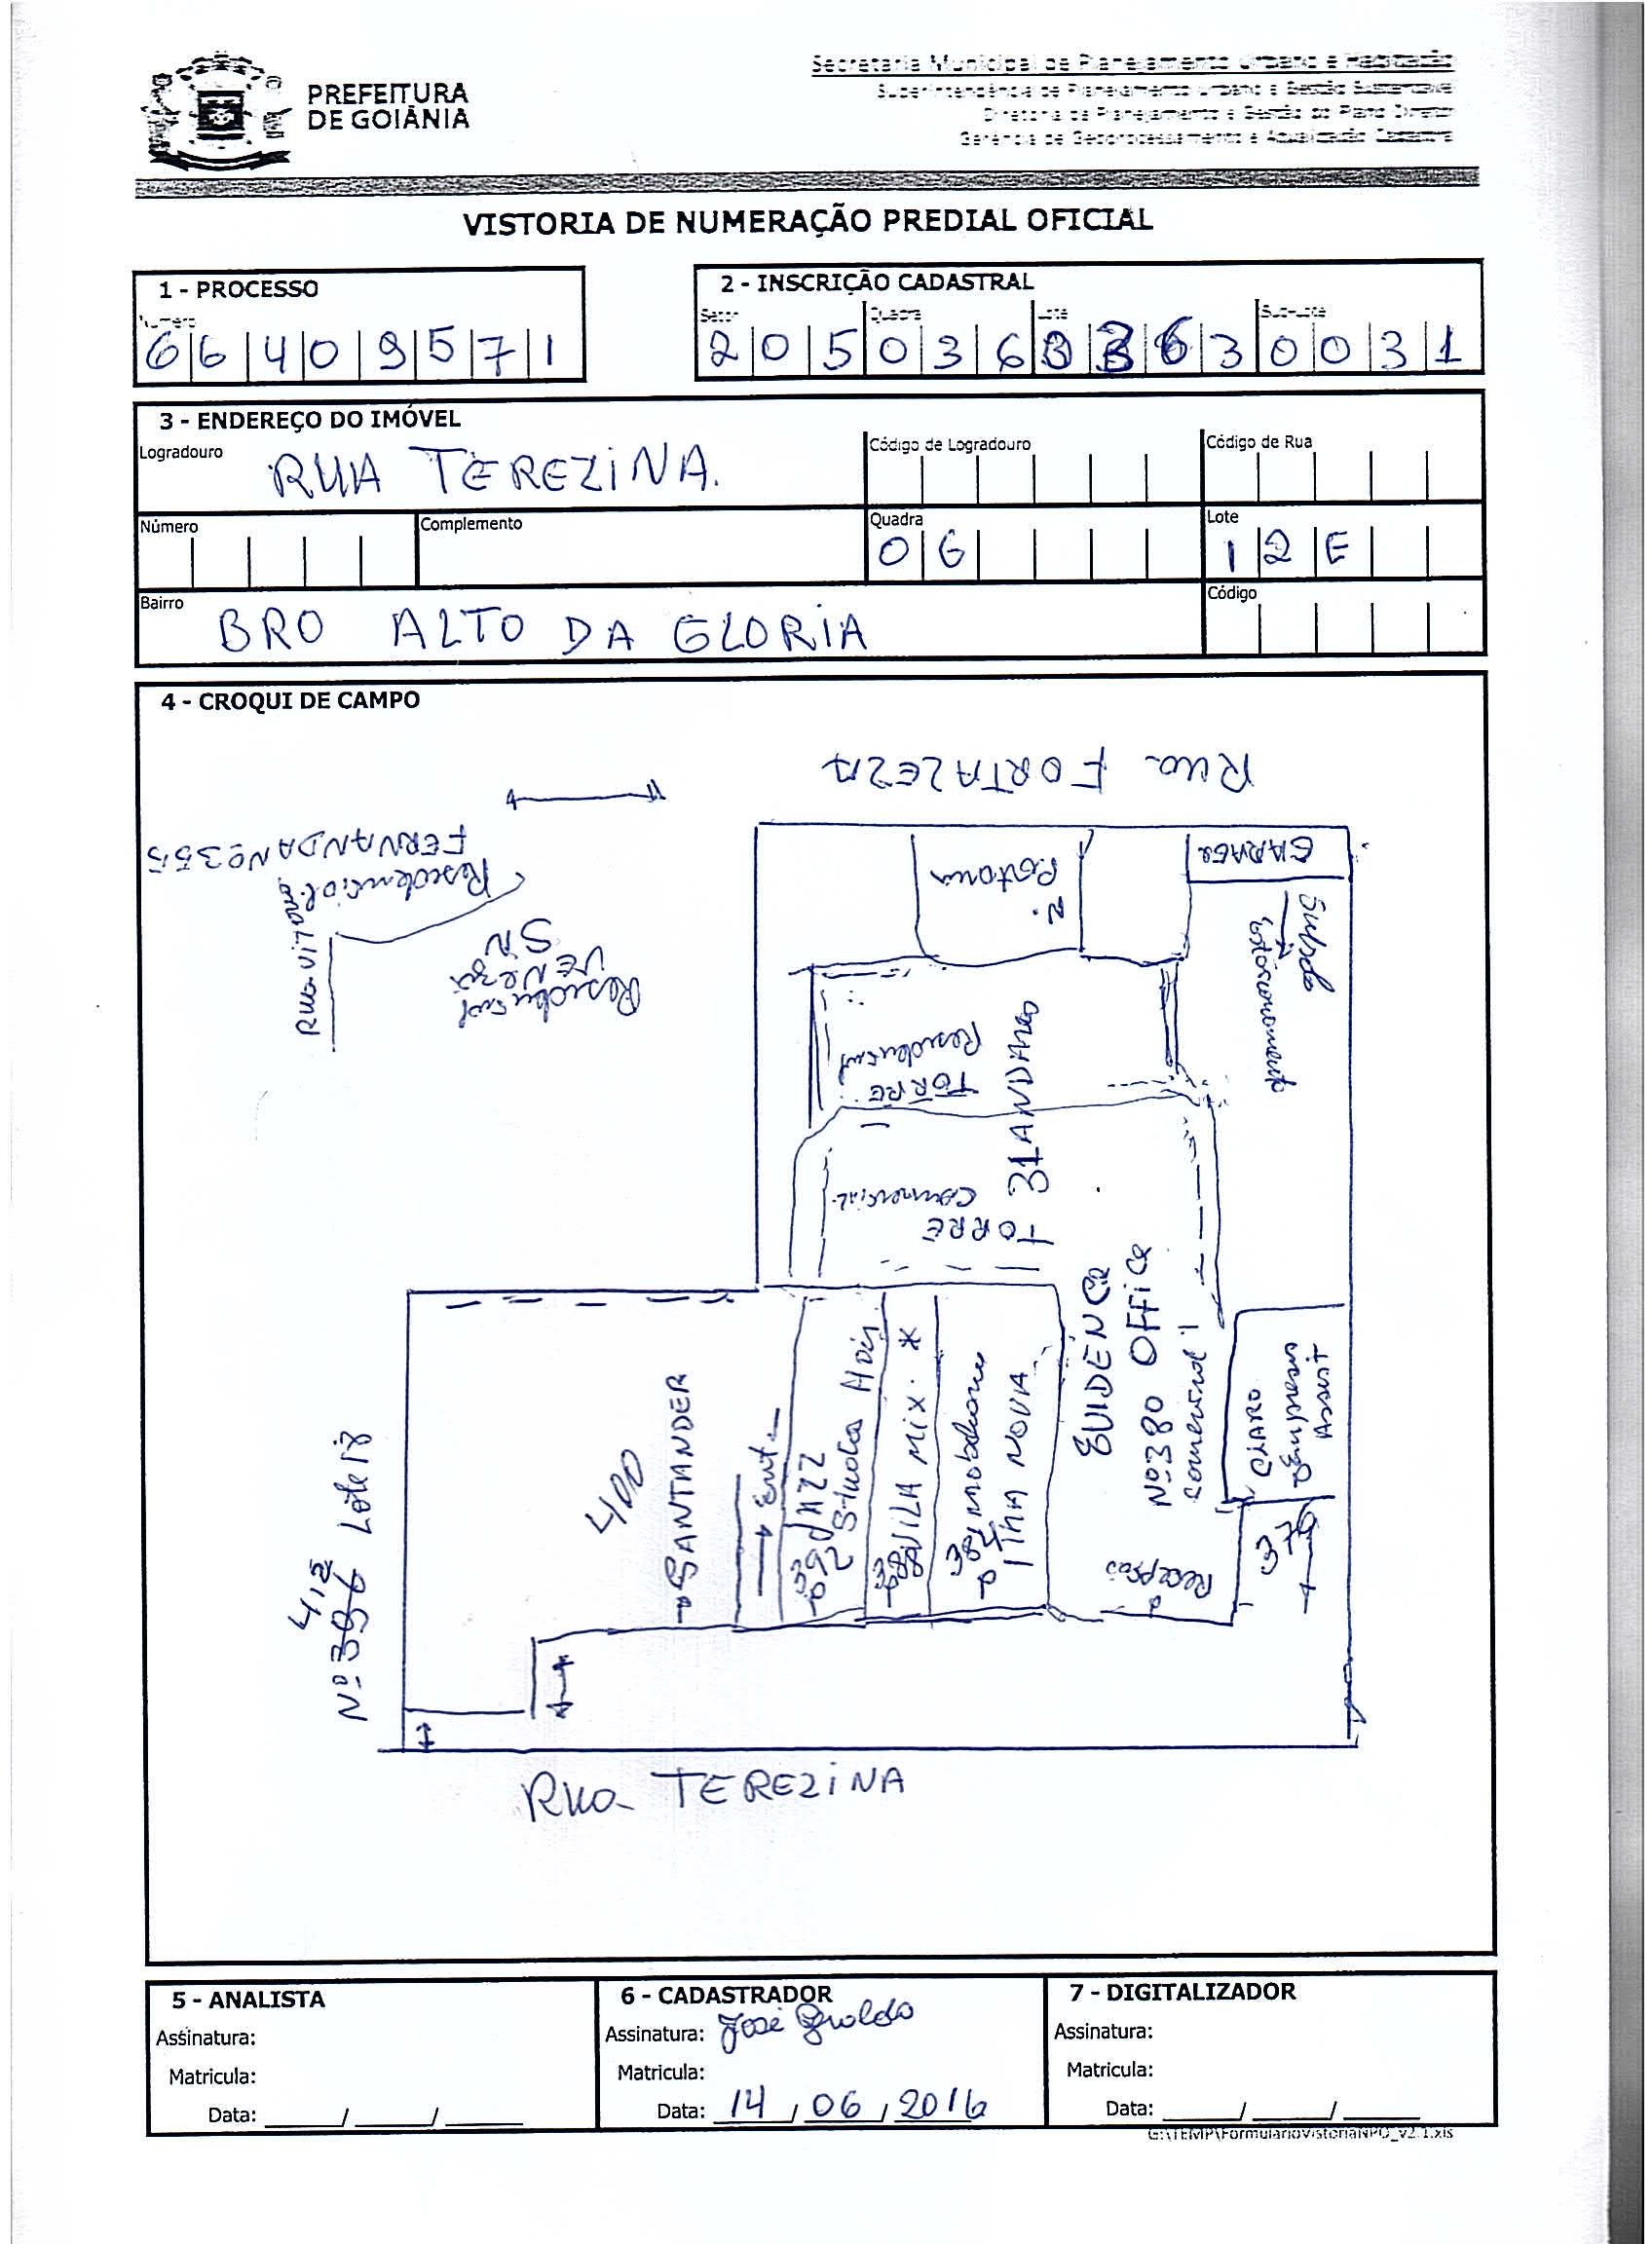 PREFEITURA
DE GOIÂNIA
Secretaria Municipal de Planejamento Urbano e Habitação
Superintendência de Planejamento Urbano e Gestão Sustentável
Diretoria de Planejamento e Gestão do Plano Diretor
Gerência de Geoprocessamento e Atualização Cadastral
VISTORIA DE NUMERAÇÃO PREDIAL OFICIAL
1 - PROCESSO
Número
6 6 4 0 9 5 7 1
2 - INSCRIÇÃO CADASTRAL
Setor Quadra Lote Sub-Lote
2 0 5 0 3 6 3 0 0 3 1
3 - ENDEREÇO DO IMÓVEL
Logradouro RUA TEREZINA.
Código de Logradouro
Código de Rua
Número
Complemento
Quadra
0 6
Lote
1 2 E
Bairro
BRO ALTO DA GLORIA
Código
4 - CROQUI DE CAMPO
Rua FORTALEZA
Residencial
FERNANDA Nº 355
Rua VITORIA
Residencial
VENEZA
SN
Portaria
2
GARAGE
Subsolo
Estacionamento
TORRE
Residencial
31 ANDARES
TORRE
Comercial
EUIDENCE
OFFICE
Nº 380
comercial 1
Recepção
CLARO
379
SANTANDER
400
Ent.
392 JAZZ
388 VILA MIX *
384 imobiliaria
ITHA NOVA
Nº 396 Lote 13
412
Rua TEREZINA
5 - ANALISTA
Assinatura:
Matricula:
Data: ____/____/____
6 - CADASTRADOR
Assinatura: José Geraldo
Matricula:
Data: 14 / 06 / 2016
7 - DIGITALIZADOR
Assinatura:
Matricula:
Data: ____/____/____
G:\TEMP\FormularioVistoriaNPO_v2.1.xls